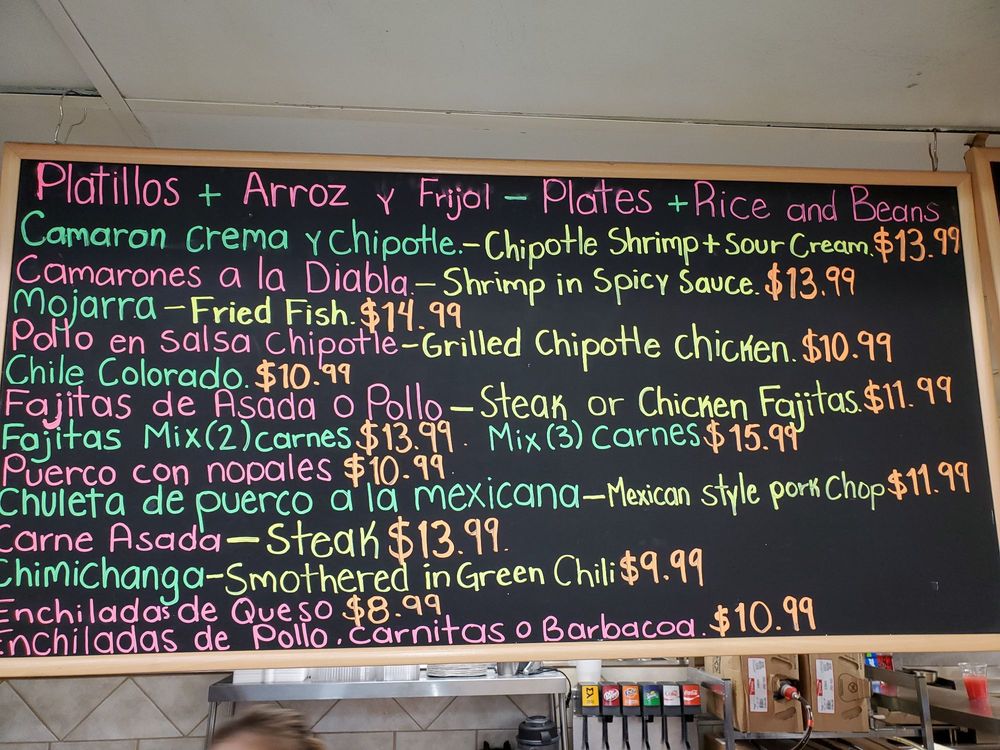 Platillos + Arroz y Frijol - Plates + Rice and Beans
Camaron crema y Chipotle.-Chipotle Shrimp + Sour Cream.$13.99
Camarones a la Diabla.-Shrimp in Spicy Sauce.$13.99
Mojarra-Fried Fish.$14.99
Pollo en salsa Chipotle-Grilled Chipotle chicken.$10.99
Chile Colorado.$10.99
Fajitas de Asada o Pollo-Steak or Chicken Fajitas.$11.99
Fajitas Mix(2)carnes $13.99. Mix(3) Carnes $15.99
Puerco con nopales $10.99
Chuleta de puerco a la mexicana-Mexican style pork Chop $11.99
Carne Asada-Steak $13.99.
Chimichanga-Smothered in Green Chili $9.99
Enchiladas de Queso $8.99
Enchiladas de Pollo, carnitas o Barbacoa.$10.99